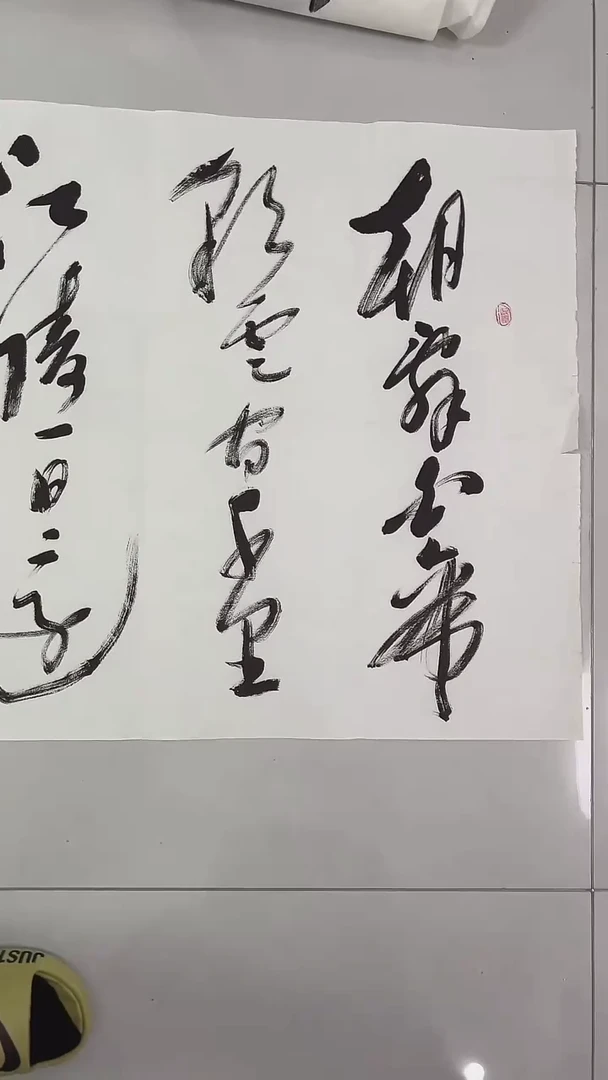 朝辞白帝
彩云间千里
江陵一日还
JUST